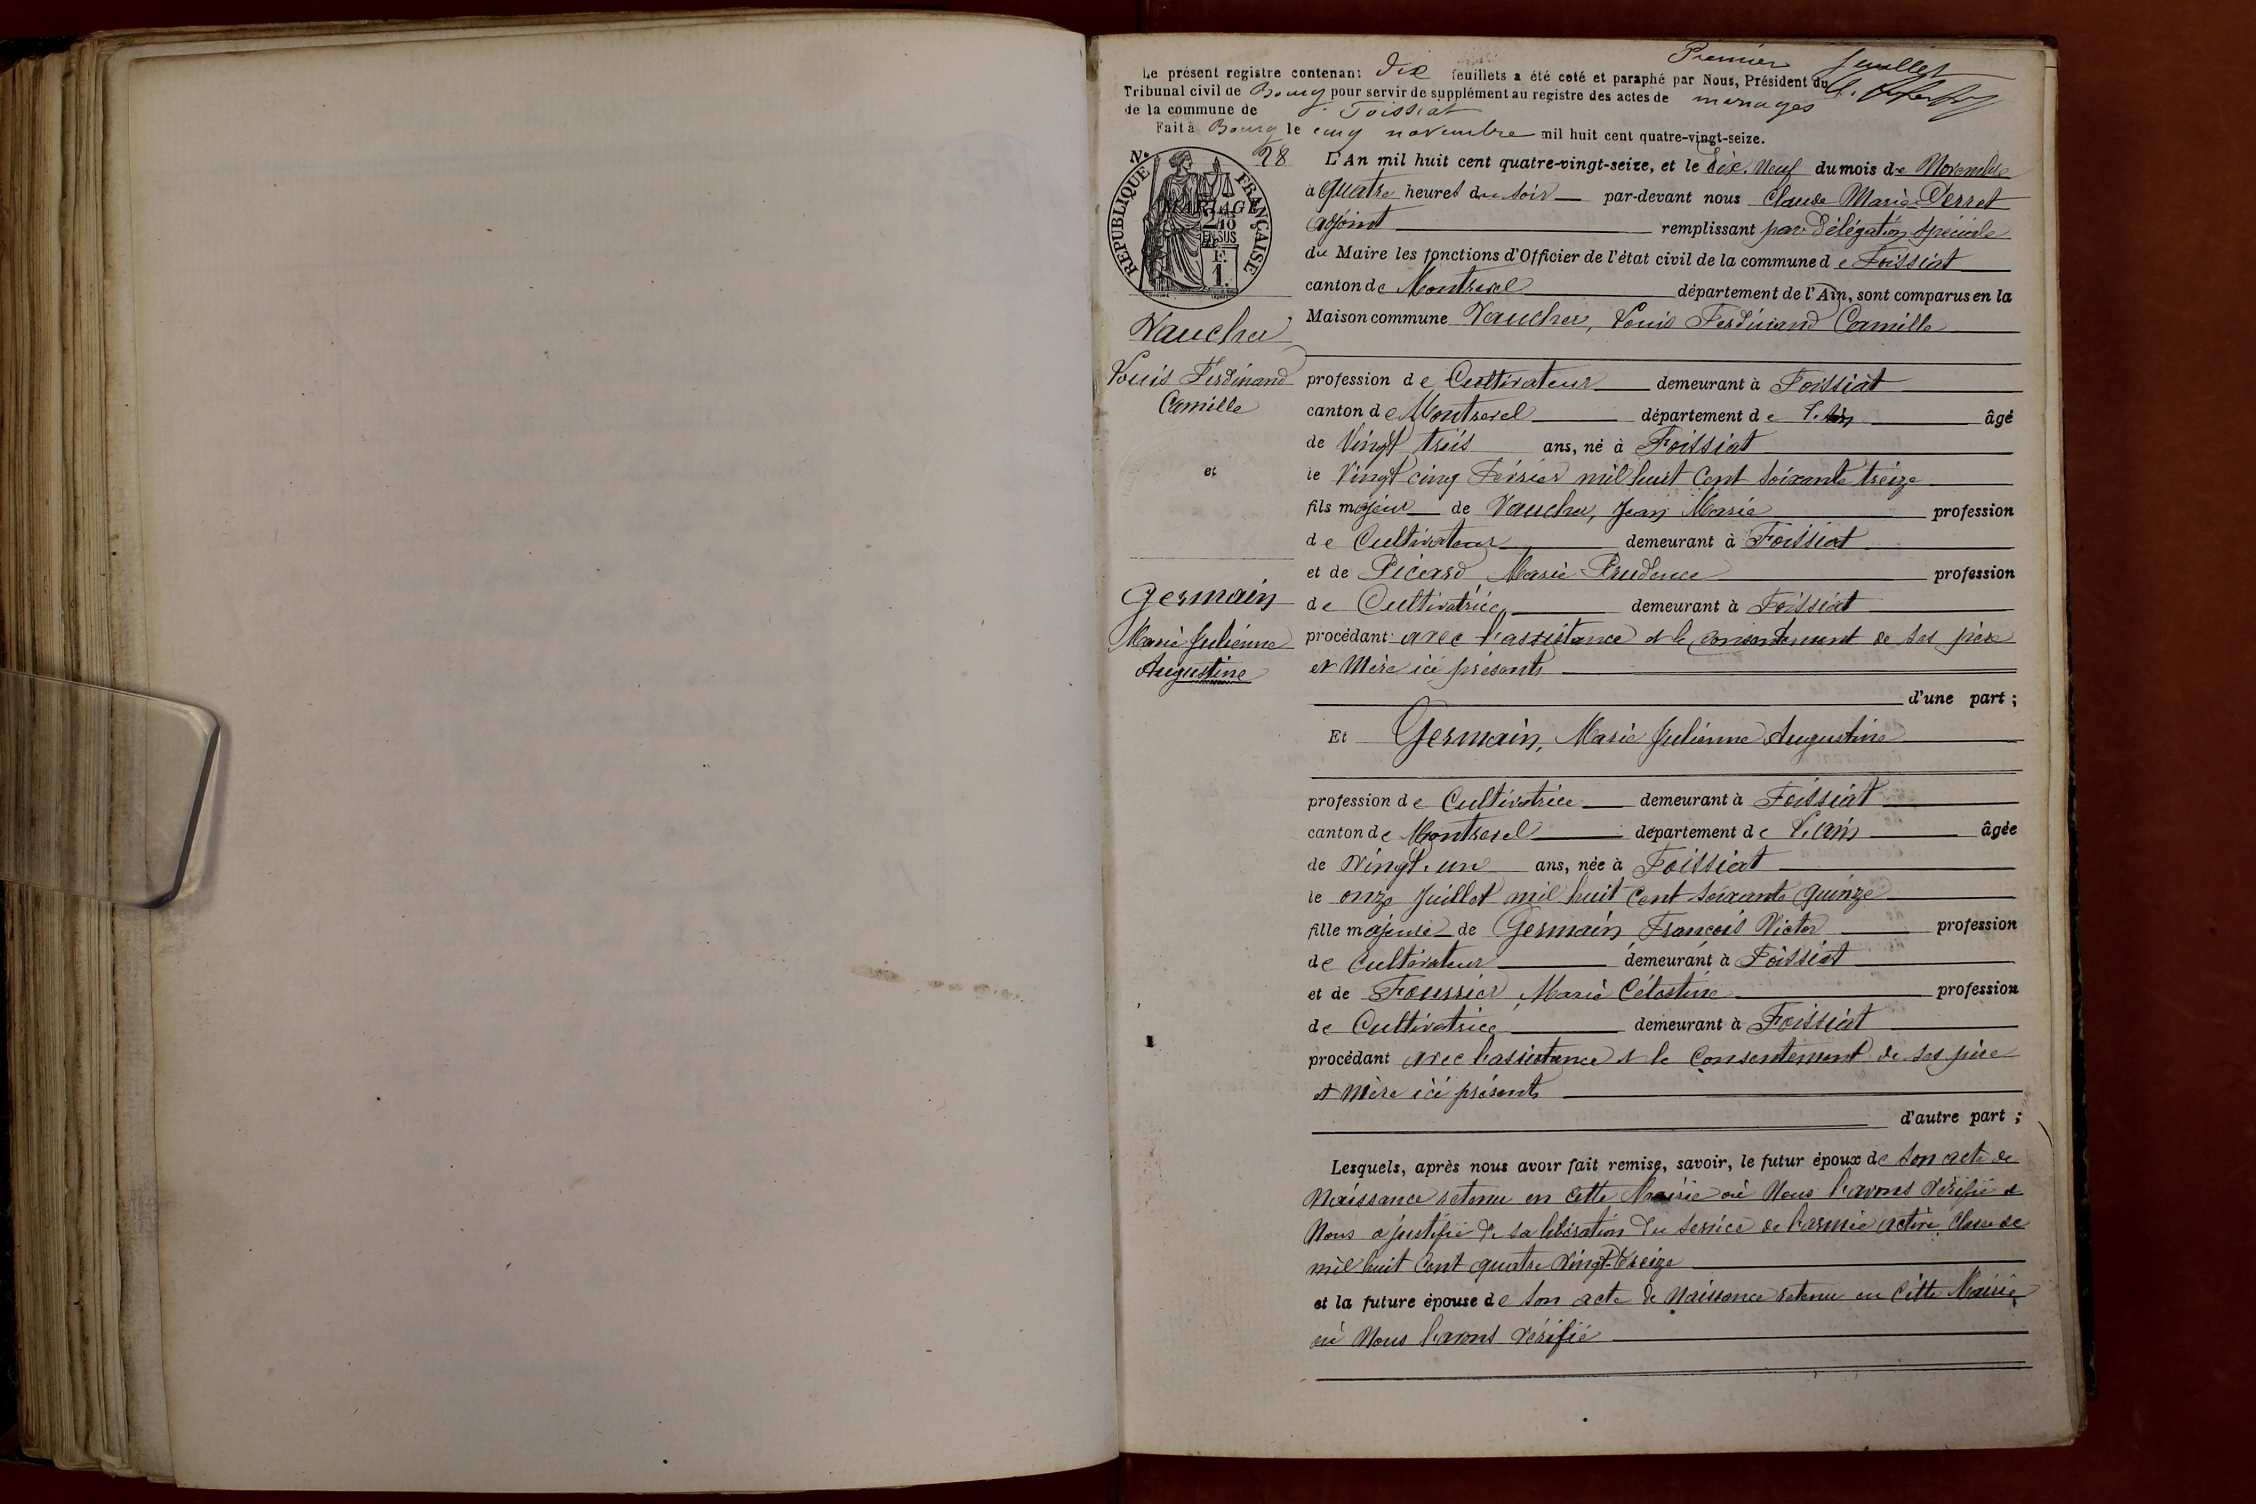 Premier feuillet
Le présent registre contenant dix feuillets a été coté et paraphé par Nous, Président du
Tribunal civil de Bourg pour servir de supplément au registre des actes de mariages
de la commune de Foissiat
Fait à Bourg le cinq novembre mil huit cent quatre-vingt-seize.
No 28
REPUBLIQUE FRANÇAISE
MARIAGE
2/10
EN SUS
1 F.
Vaucher
Louis Ferdinand
Camille
et
Germain
Marie Julienne
Augustine
L'An mil huit cent quatre-vingt-seize, et le dix-neuf du mois de Novembre
à quatre heures du soir par-devant nous Claude Marie Perret
adjoint remplissant par délégation spéciale
du Maire les fonctions d'Officier de l'état civil de la commune de Foissiat
canton de Montrevel département de l'Ain, sont comparus en la
Maison commune Vaucher, Louis Ferdinand Camille
profession de Cultivateur demeurant à Foissiat
canton de Montrevel département de l'Ain âgé
de Vingt trois ans, né à Foissiat
le Vingt cinq Février mil huit cent soixante treize
fils majeur de Vaucher, Jean Marie profession
de Cultivateur demeurant à Foissiat
et de Picard, Marie Prudence profession
de Cultivatrice demeurant à Foissiat
procédant avec l'assistance et le consentement de ses père
et Mère ici présents
d'une part ;
Et Germain, Marie Julienne Augustine
profession de Cultivatrice demeurant à Foissiat
canton de Montrevel département de l'Ain âgée
de vingt-un ans, née à Foissiat
le onze Juillet mil huit cent soixante quinze
fille majeure de Germain François Victor profession
de Cultivateur demeurant à Foissiat
et de Foussier Marie Célestine profession
de Cultivatrice demeurant à Foissiat
procédant avec l'assistance et le consentement de ses père
et Mère ici présents
d'autre part ;
Lesquels, après nous avoir fait remise, savoir, le futur époux de son acte de
Naissance retenu en cette Mairie où Nous l'avons vérifié et
Nous a justifié de sa libération du service de l'armée active classe de
mil huit cent quatre vingt-treize
et la future épouse de son acte de Naissance retenu en cette Mairie
où Nous l'avons vérifié